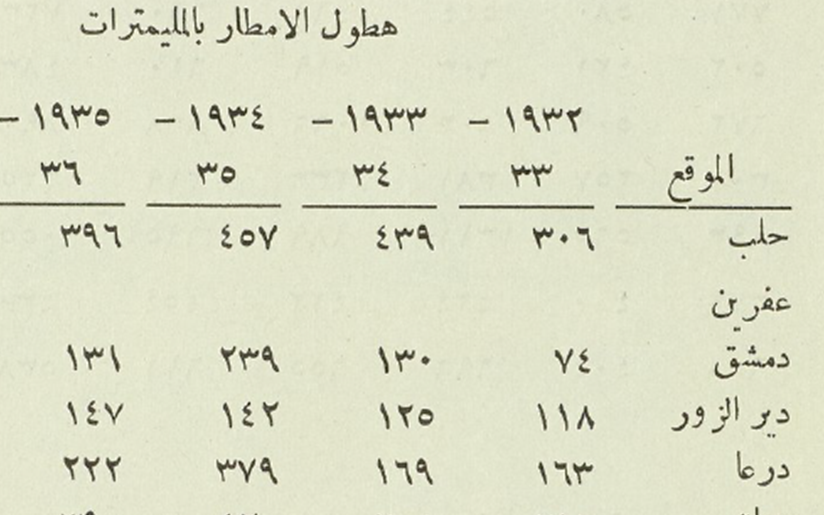 هطول الامطار بالمليمترات
١٩٣٢ – ١٩٣٣ – ١٩٣٤ – ١٩٣٥ –
الموقع ٣٣ ٣٤ ٣٥ ٣٦
حلب ٣٠٦ ٤٣٩ ٤٥٧ ٣٩٦
عفرين
دمشق ٧٤ ١٣٠ ٢٣٩ ١٣١
دير الزور ١١٨ ١٢٥ ١٤٢ ١٤٧
درعا ١٦٣ ١٦٩ ٣٧٩ ٢٢٢